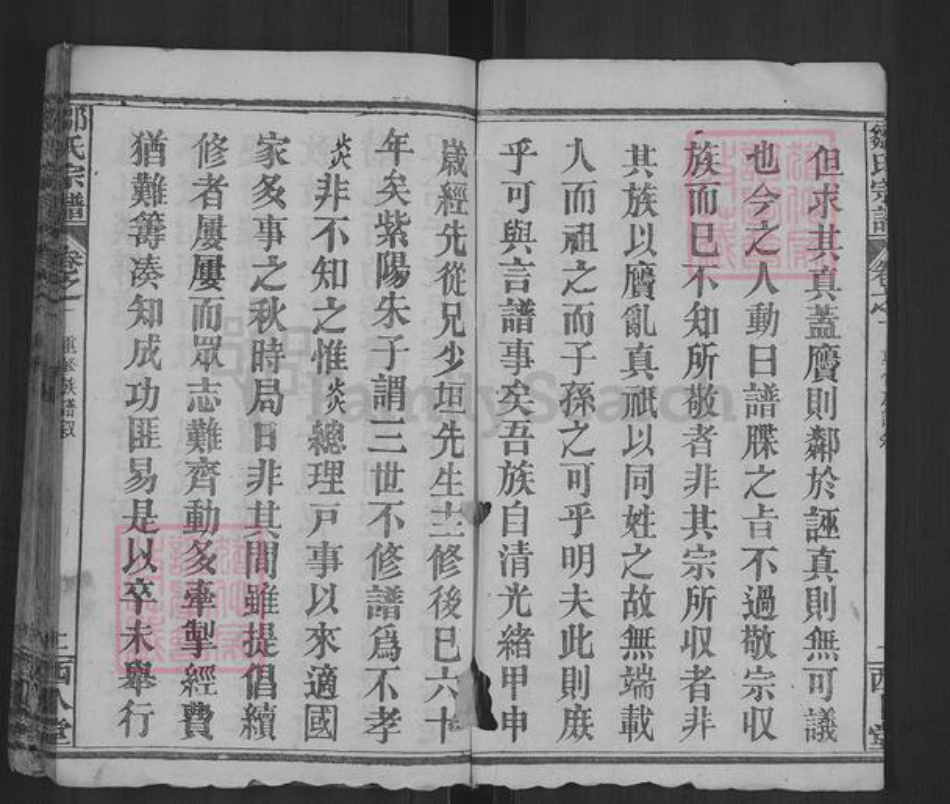 但求其真蓋贗則鄰於誣真則無可議
也今之人動曰譜牒之旨不過敬宗收
族而已不知所敬者非其宗所収者非
其族以贗亂真祇以同姓之故無端載
人而祖之而子孫之可乎明夫此則庶
乎可與言譜事矣吾族自清光緒甲申
歲經先從兄少垣先生主修後已六十
年矣紫陽朱子謂三世不修譜爲不孝
炎非不知之惟炎總理戸事以來適國
家多事之秋時局日非其間雖提倡續
修者屢屢而眾志難齊動多牽掣經費
猶難籌湊知成功匪易是以卒未舉行
鄒氏宗譜
卷之一
重修族譜叙
FamilySearch